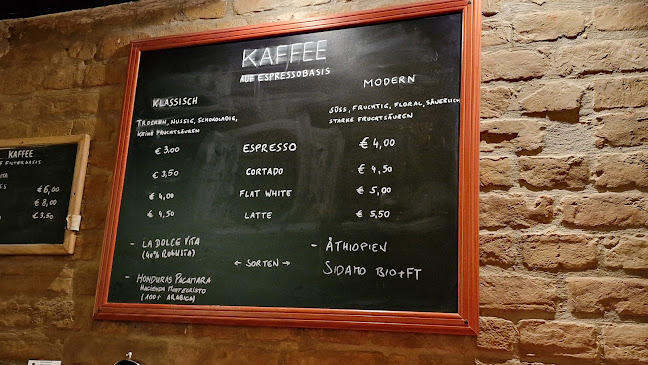 KAFFEE
AUF ESPRESSOBASIS
KLASSISCH
TROCKEN, NUSSIG, SCHOKOLADIG,
KEINE FRUCHTSÄUREN
MODERN
SÜSS, FRUCHTIG, FLORAL, SÄUERLICH
STARKE FRUCHTSÄUREN
€ 3,00 ESPRESSO € 4,00
€ 3,50 CORTADO € 4,50
€ 4,00 FLAT WHITE € 5,00
€ 4,50 LATTE € 5,50
- LA DOLCE VITA
(40% ROBUSTA)
- HONDURAS PACAMARA
HACIENDA MONTECRISTO
(100% ARABICA)
← SORTEN →
- ÄTHIOPIEN
SIDAMO BIO+FT
KAFFEE
FILTERBASIS
€ 6,00
€ 8,00
€ 3,50